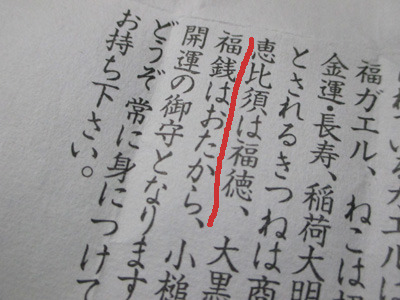 れているカエル
福ガエル、ねこは
金運・長寿、稲荷大明
とされるきつねは商
恵比須は福徳、大黒
福銭はおたから、小槌
開運の御守となります
どうぞ常に身につけて
お持ち下さい。